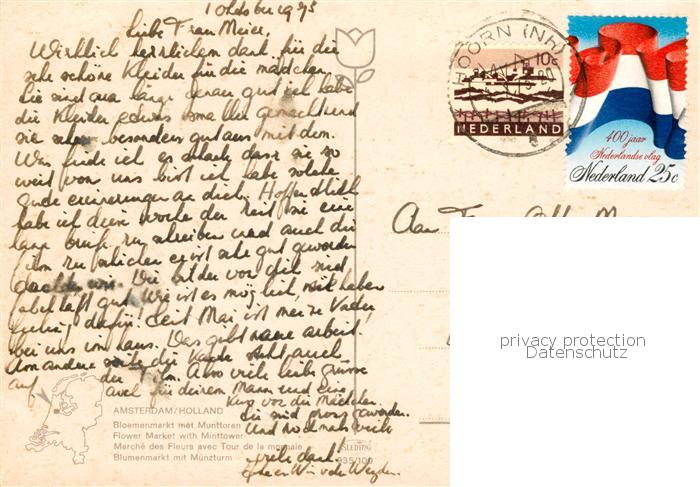 1 Oktober 1973
Liebe Frau Meier.
Wirklich herrlichen dank für die
sehr schöne Kleider für die mädchen.
Sie sind qua länge genau gut ich habe
die Kleider etwas smaller gemacht und
sie besonders gut aus mit dem.
Was finde ich es schade dass sie so
weit von uns bist ich habe solche
gute erinnerungen an dich. Hoffentlich
habe ich diese woche der Zeit sie ein
lang brief zu schreiben und auch die
film zu schicken er ist sehr gut geworden
Die bilder von dich sind
fabelhaft gut wie ist es möglich, wir haben
dafür! Seit Mai ist meine Vater
bei uns von haus. Das gibt arbeit.
Am andere seite die Karte steht auch
auf der film. Also viele liebe grüsse
auch für deinem Mann und ein
Kuss von die Mädchen
die sind gross geworden.
Und noch mals viele
viele dank!
v.d. Weyden.
AMSTERDAM/HOLLAND
Bloemenmarkt met Munttoren
Flower Market with Minttower
Marché des Fleurs avec Tour de la monnaie
Blumenmarkt mit Münzturm
935/100
HOORN (NH)
10c
NEDERLAND
400 jaar
Nederlandse vlag
Nederland 25c
Aan
privacy protection
Datenschutz